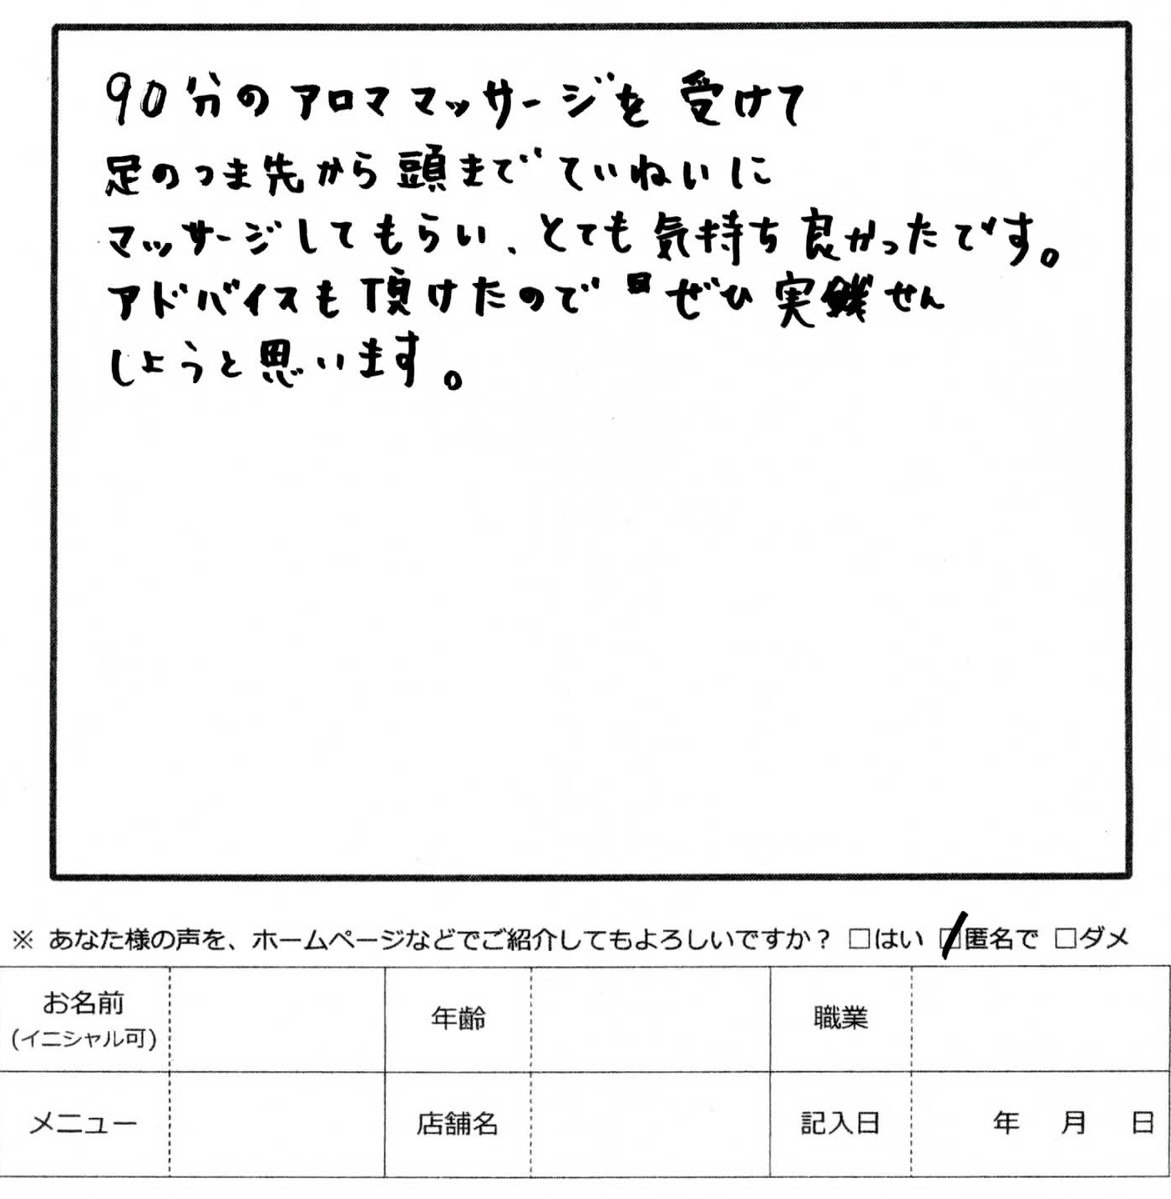 90分のアロママッサージを受けて
足のつま先から頭までていねいに
マッサージしてもらい、とても気持ち良かったです。
アドバイスも頂けたのでぜひ実践せん
しようと思います。
※ あなた様の声を、ホームページなどでご紹介してもよろしいですか？ □はい □匿名で □ダメ
お名前
(イニシャル可)
年齢
職業
メニュー
店舗名
記入日
年 月 日